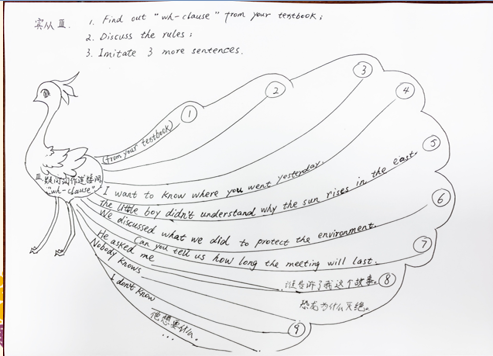 实从亚. 1. Find out "wh-clause" from your textbook;
2. Discuss the rules;
3. Imitate 3 more sentences.
①
②
③
④
⑤
⑥
⑦
⑧
⑨
(from your textbook)
疑问词作连接词
"wh-clause"
I want to know where you went yesterday.
The little boy didn't understand why the sun rises in the east.
We discussed what we did to protect the environment.
Can you tell us how long the metting will last.
He asked me 谁告诉了我这个故事.
Nobody knows 恐龙为什么灭绝.
I don't know 他想要什么.
...